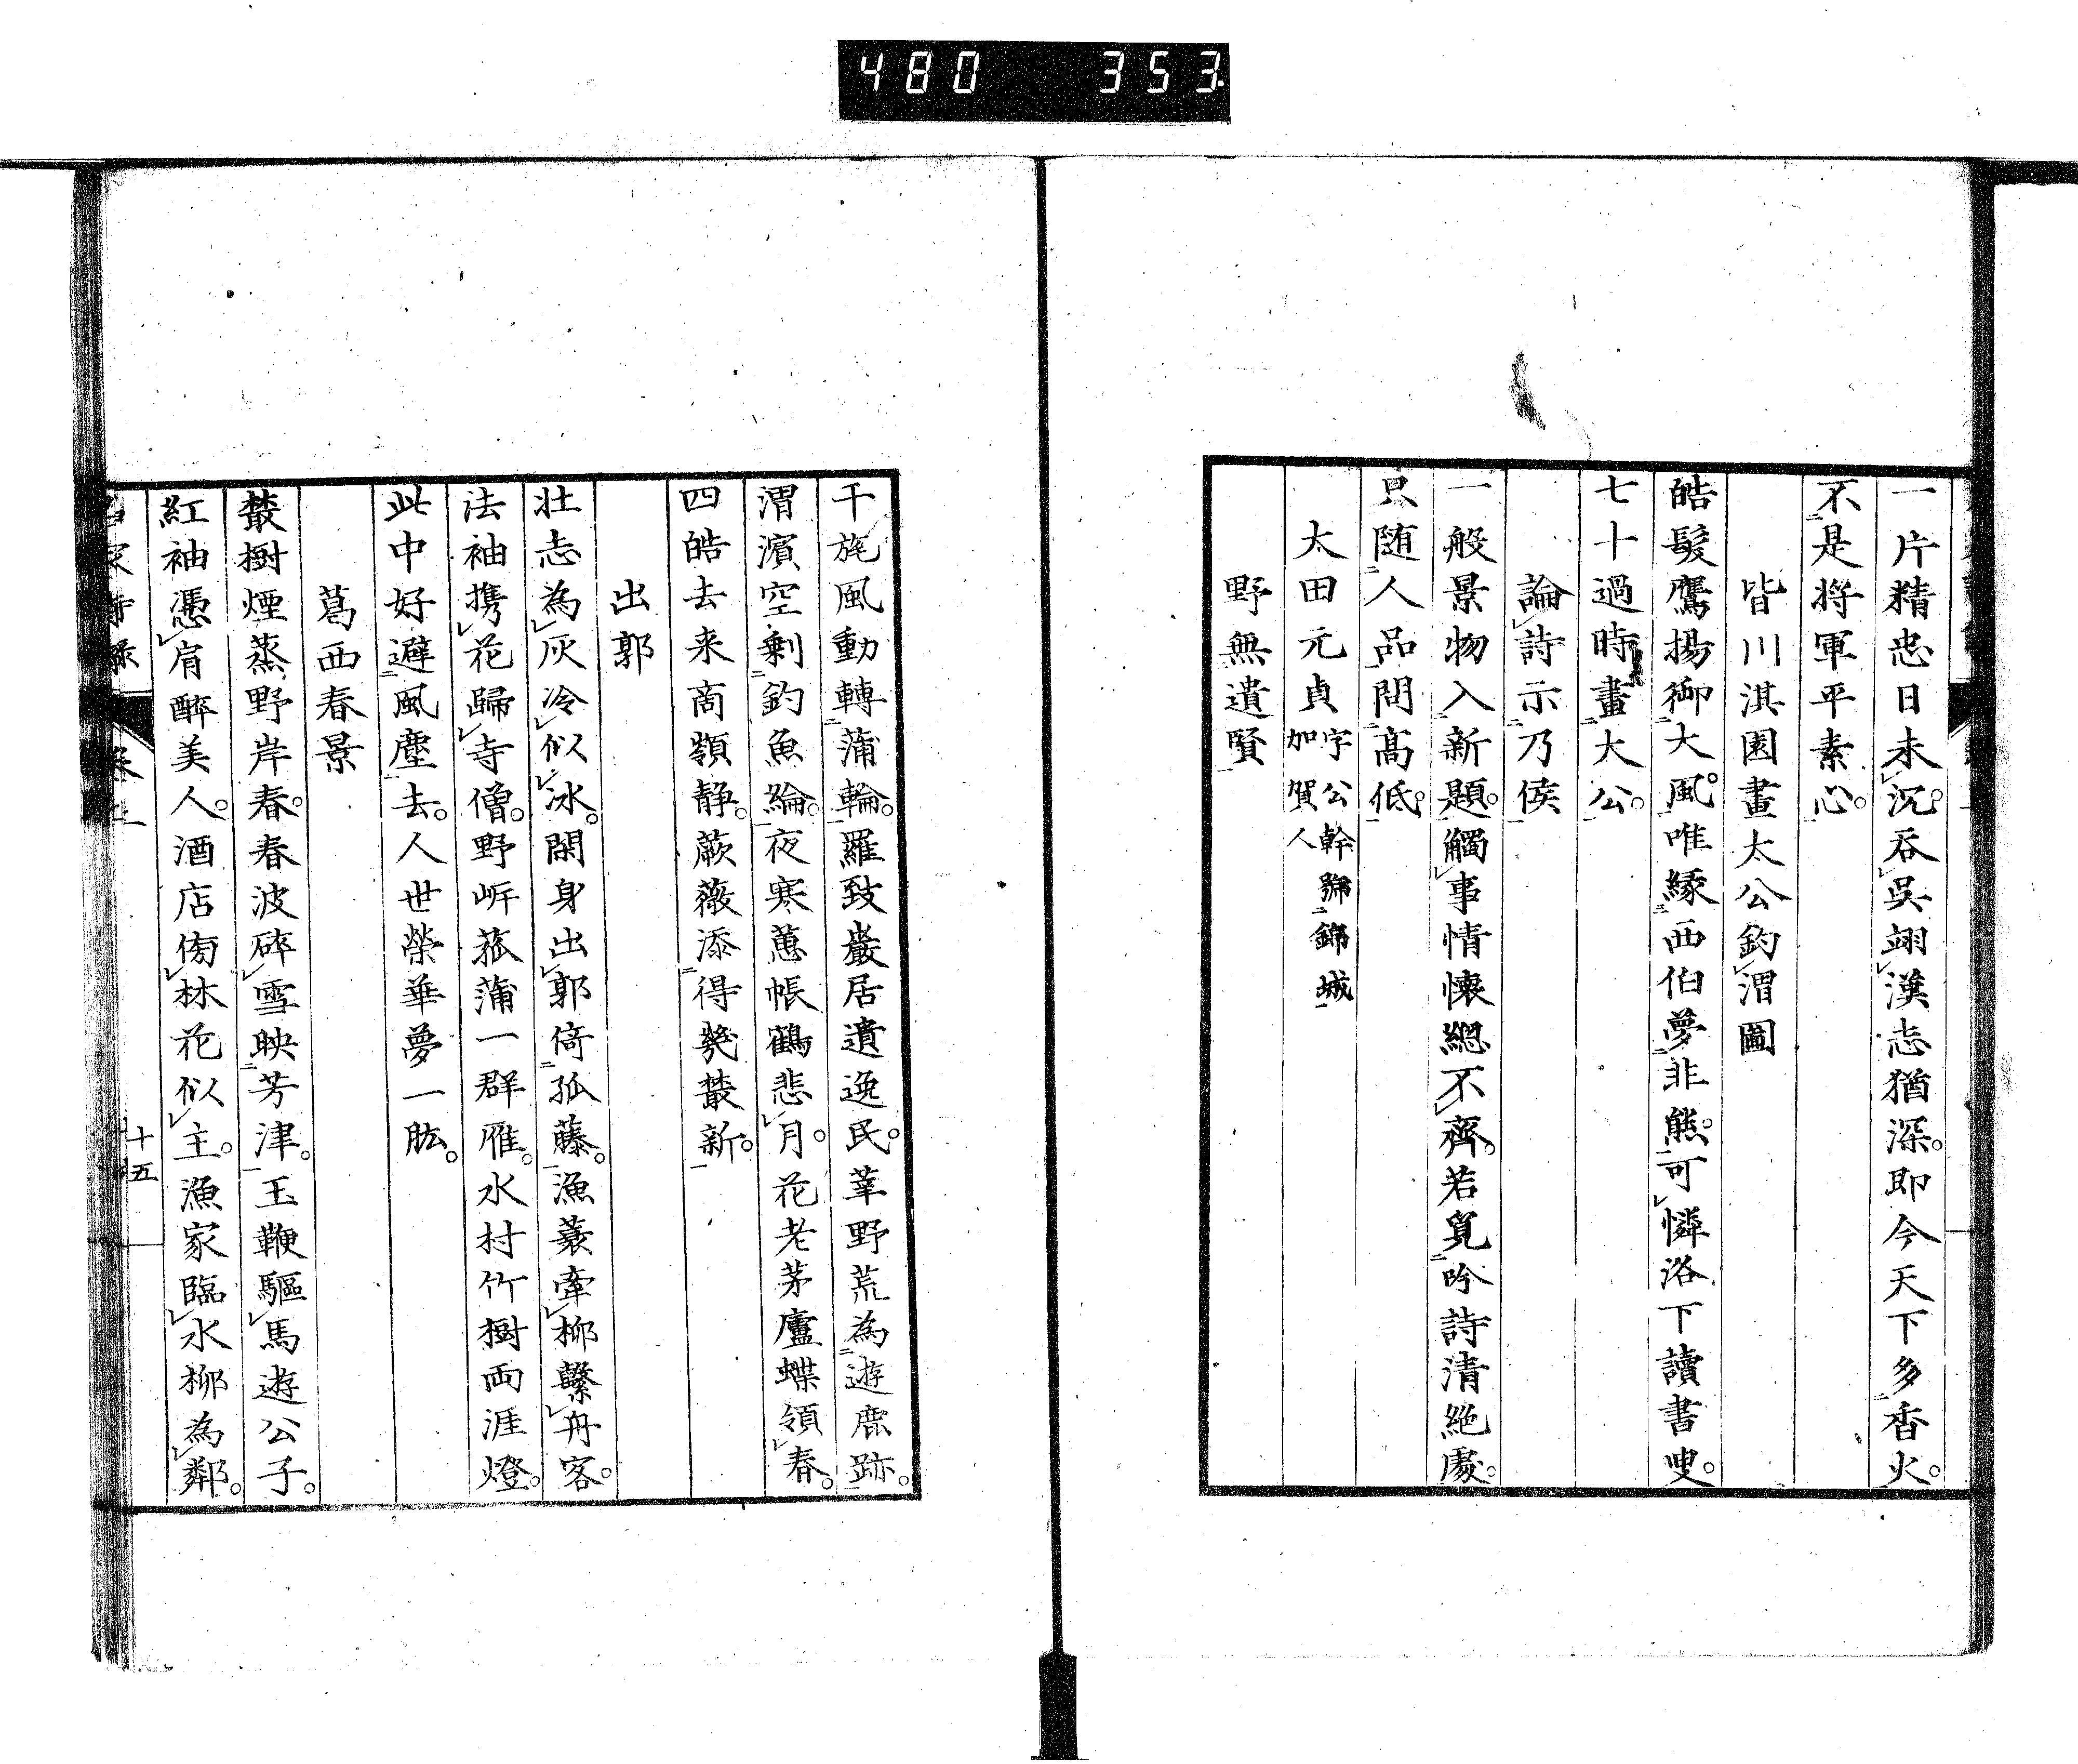 480 353
一片精忠日未沉。吞呉翊漢志猶深。即今天下多香火。
不是将軍平素心。
皆川淇園畫太公釣渭圖
皓髮鷹揚御大風。唯縁西伯夢非熊。可憐洛下讀書叟。
七十過時畫大公。
論詩示乃侯
一般景物入新題。觸事情懐緫不齊。若覓吟詩清絶處。
只随人品問髙低。
太田元貞 字公幹號錦城
加賀人
野無遺賢
干旄風動轉蒲輪。羅致巖居遺逸民。莘野荒為遊鹿跡。
渭濱空剰釣魚綸。夜寒蕙帳鶴悲月。花老茅廬蝶領春。
四皓去来商嶺静。蕨薇添得幾叢新。
出郭
壮志為灰冷似冰。閑身出郭倚孤藤。漁蓑牽柳繫舟客。
法袖携花歸寺僧。野岼菰蒲一群雁。水村竹樹両涯燈。
此中好避風塵去。人世榮華夢一肱。
葛西春景
叢樹煙蒸野岸春。春波碎雪映芳津。玉鞭驅馬遊公子。
紅袖憑肩醉美人。酒店傍林花似主。漁家臨水柳為鄰。
十五